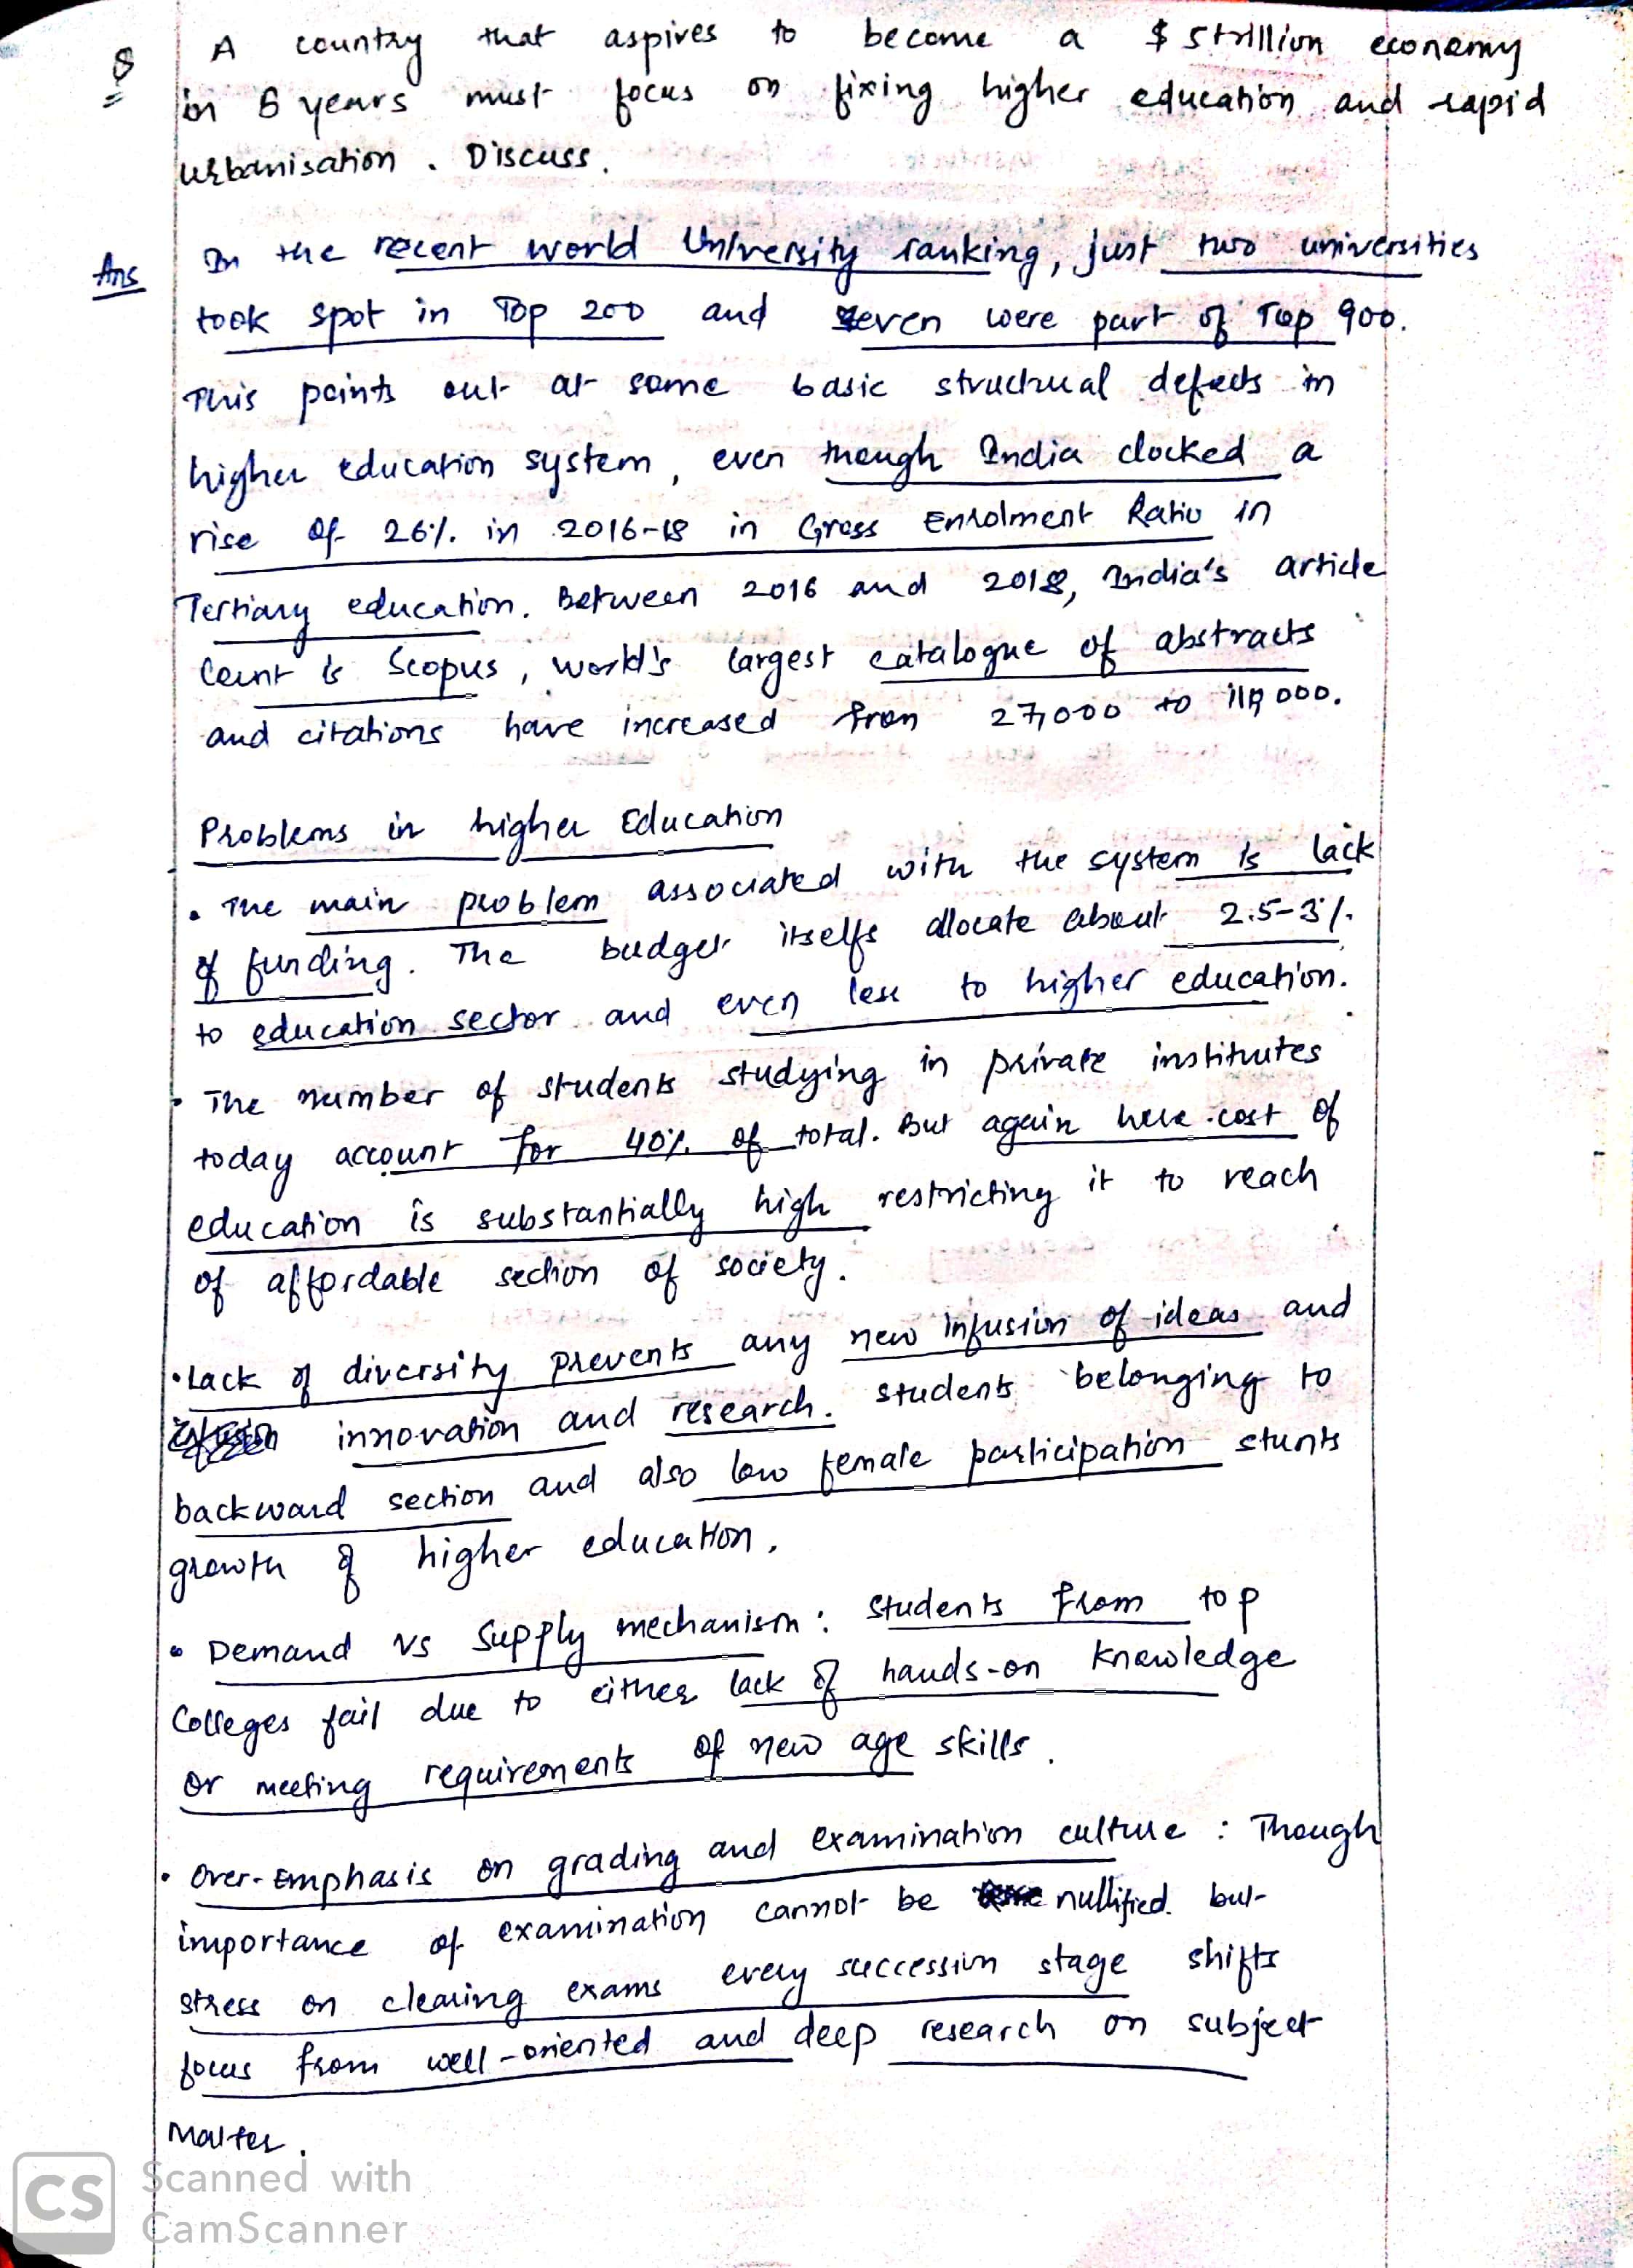 Q A country that aspires to become a $ 5 trillion economy
in 6 years must focus on fixing higher education and rapid
urbanisation. Discuss.
Ans In the recent world University ranking, just two universities
took spot in Top 200 and seven were part of Top 900.
This points out at some basic structural defects in
higher education system, even though India clocked a
rise of 26% in 2016-18 in Gross Enrolment Ratio in
Tertiary education. Between 2016 and 2018, India's article
count is Scopus, world's largest catalogue of abstracts
and citations have increased from 27,000 to
Problems in higher Education
• The main problem associated with the system is lack
of funding. The budget itselfs allocate about 2.5-3%
to education sector and even less to higher education.
• The number of students studying in private institutes
today account for 40% of total. But again here cost of
education is substantially high restricting it to reach
of affordable section of society.
• Lack of diversity prevents any new infusion of ideas and
innovation and research. students belonging to
backward section and also low female participation stunts
growth of higher education.
• Demand vs Supply mechanism: students from top
Colleges fail due to either lack of hands-on knowledge
or meeting requirements of new age skills.
• Over-Emphasis on grading and examination culture: Though
importance of examination cannot be nullified. but
stress on clearing exams every succession stage shifts
focus from well-oriented and deep research on subject
Matter.
CS Scanned with
CamScanner